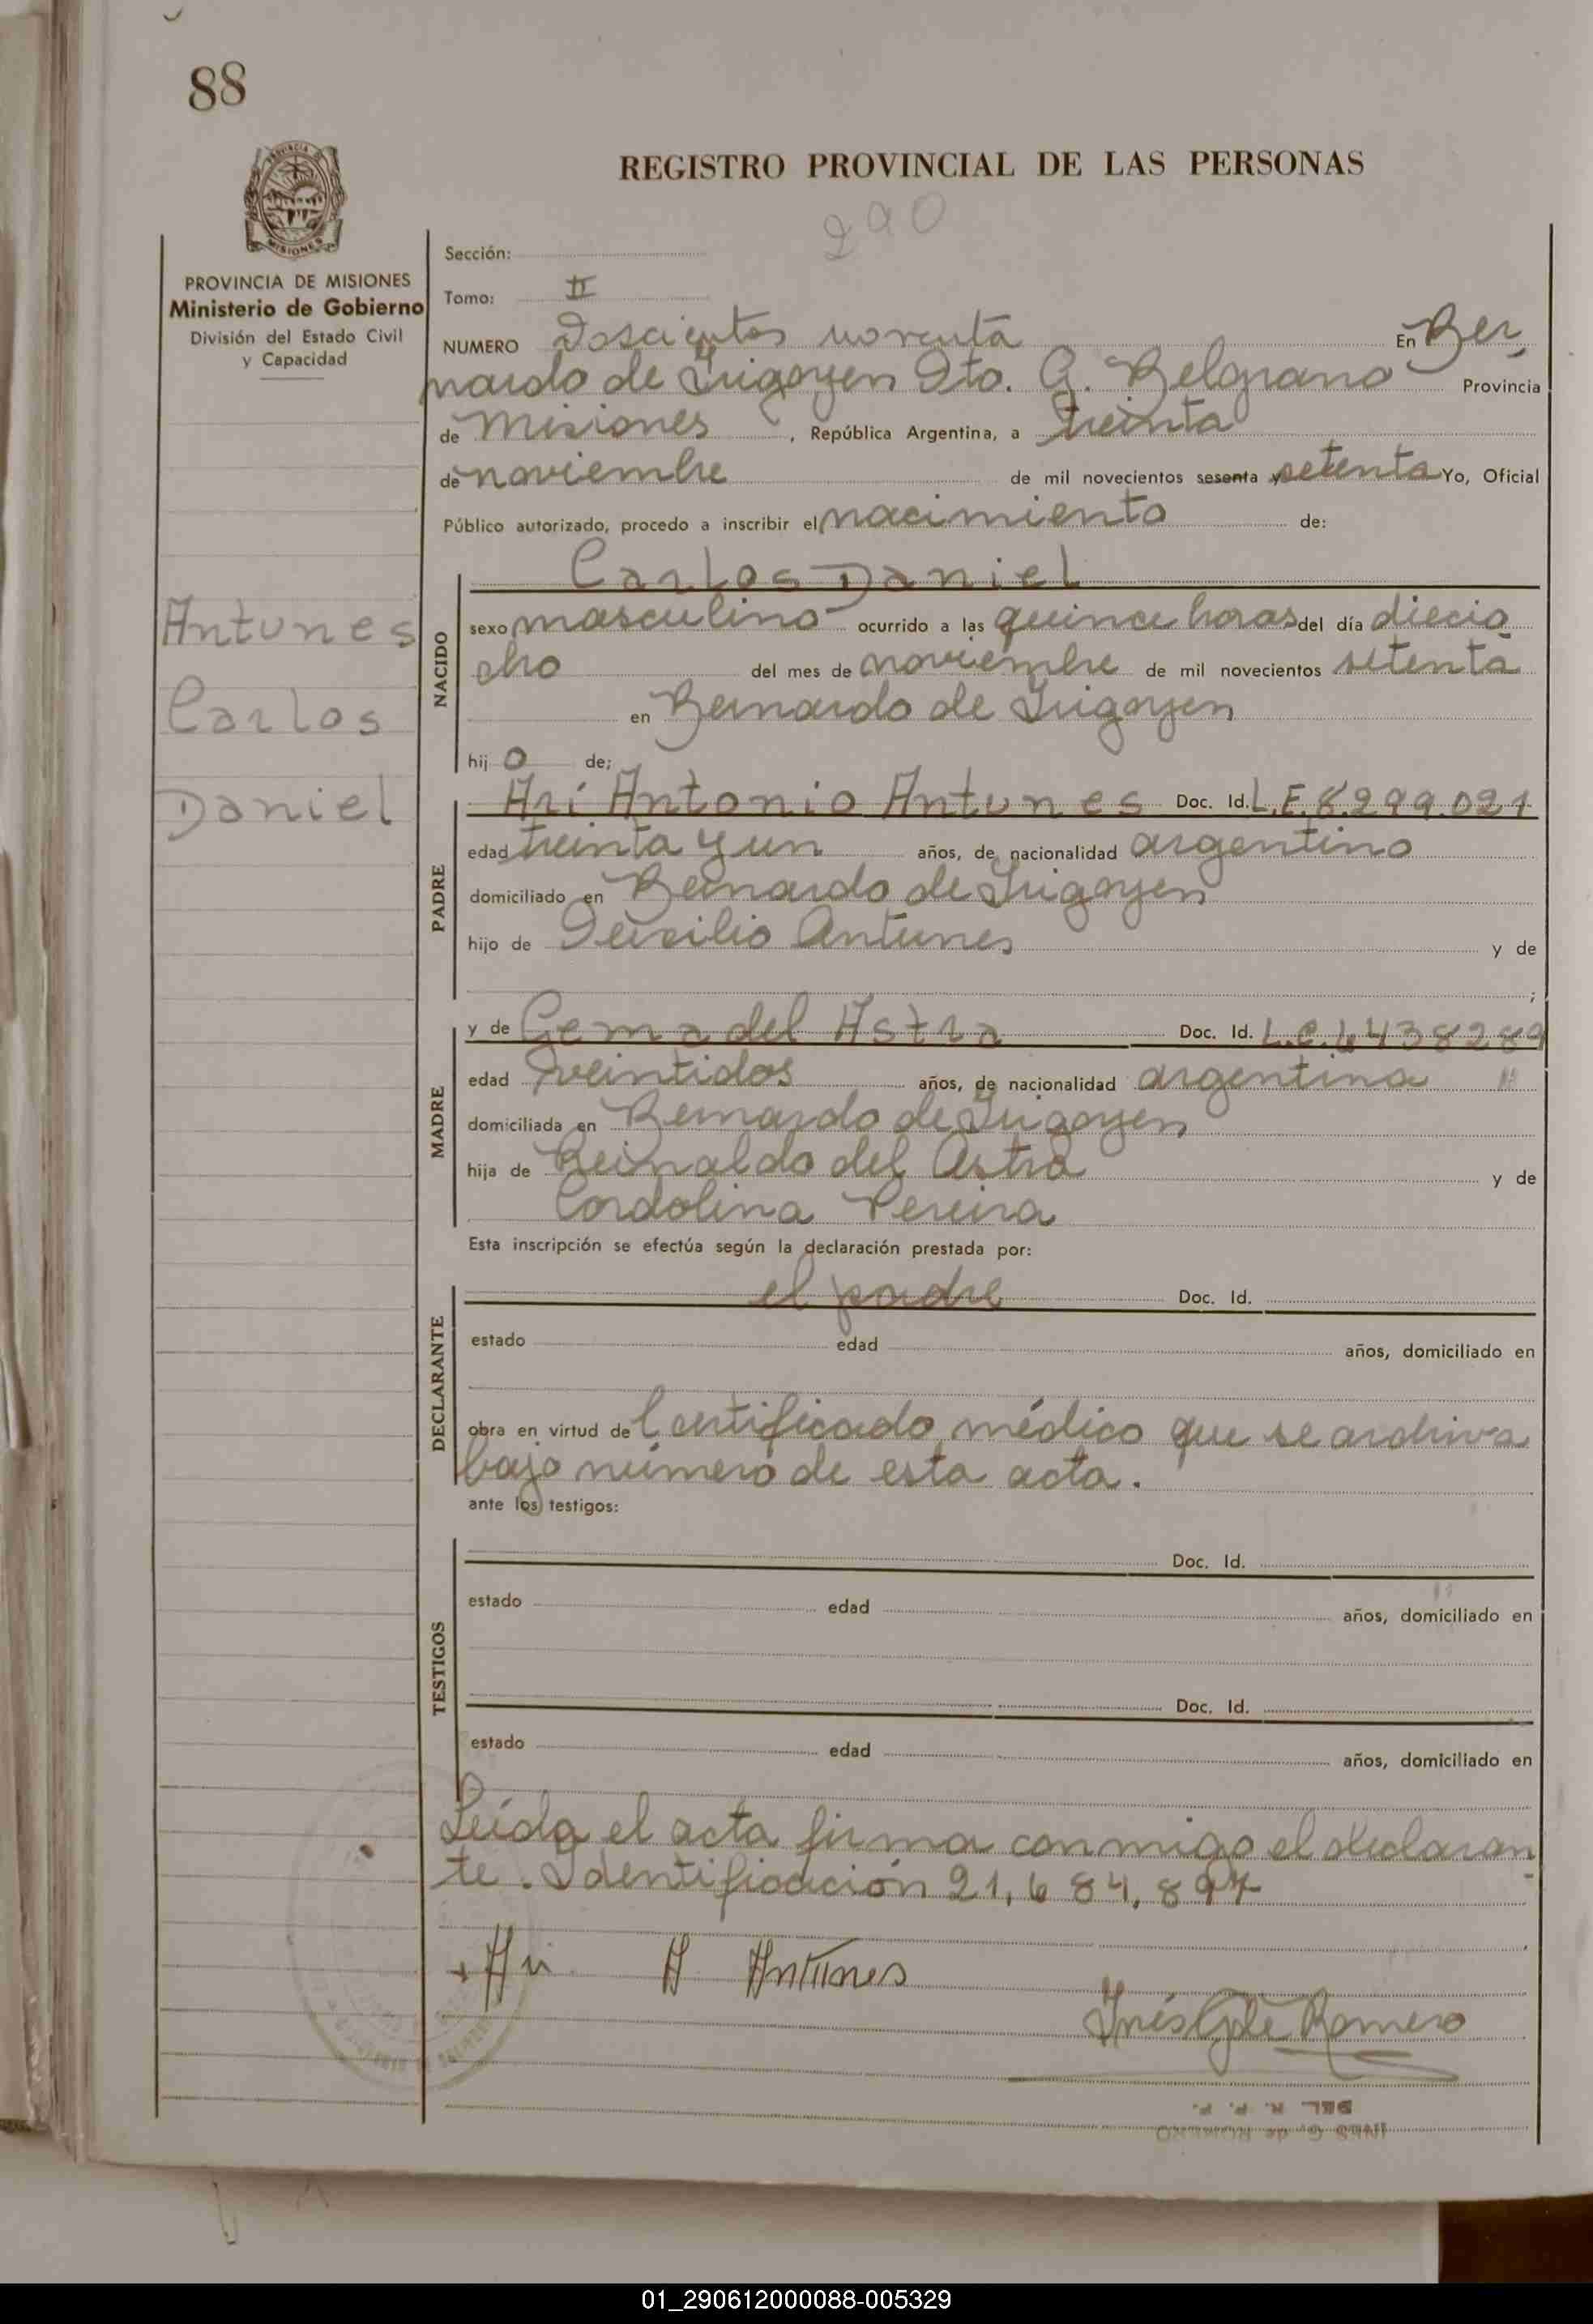 88
REGISTRO PROVINCIAL DE LAS PERSONAS
290
PROVINCIA DE MISIONES
Ministerio de Gobierno
División del Estado Civil
y Capacidad
Sección:
Tomo: II
NUMERO Doscientos noventa En Ber
nardo de Irigoyen Dto. G. Belgrano Provincia
de Misiones, República Argentina, a treinta
de noviembre de mil novecientos sesenta y setenta Yo, Oficial
Público autorizado, procedo a inscribir el nacimiento de:
Antunes
Carlos
Daniel
NACIDO
Carlos Daniel
sexo masculino ocurrido a las quince horas del día diecio
cho del mes de noviembre de mil novecientos setenta
en Bernardo de Irigoyen
hij o de;
PADRE
Ari Antonio Antunes Doc. Id. L.E. 8.299.021
edad treinta y un años, de nacionalidad argentino
domiciliado en Bernardo de Irigoyen
hijo de Antunes y de
;
MADRE
y de Gema del Astra Doc. Id. L.C. 6438289
edad veintidos años, de nacionalidad argentina
domiciliada en Bernardo de Irigoyen
hija de Reinaldo del Astra y de
Cordolina Pereira
Esta inscripción se efectúa según la declaración prestada por:
DECLARANTE
el padre Doc. Id.
estado edad años, domiciliado en
obra en virtud de Certificado médico que se archiva
bajo número de esta acta.
ante los testigos:
TESTIGOS
Doc. Id.
estado edad años, domiciliado en
Doc. Id.
estado edad años, domiciliado en
Leída el acta firma conmigo el declaran
te. Identificación 21,684,897
+ Ari A Antunes
Inés Romero
INES G. de ROMERO
DEL. R. P. P.
01_290612000088-005329